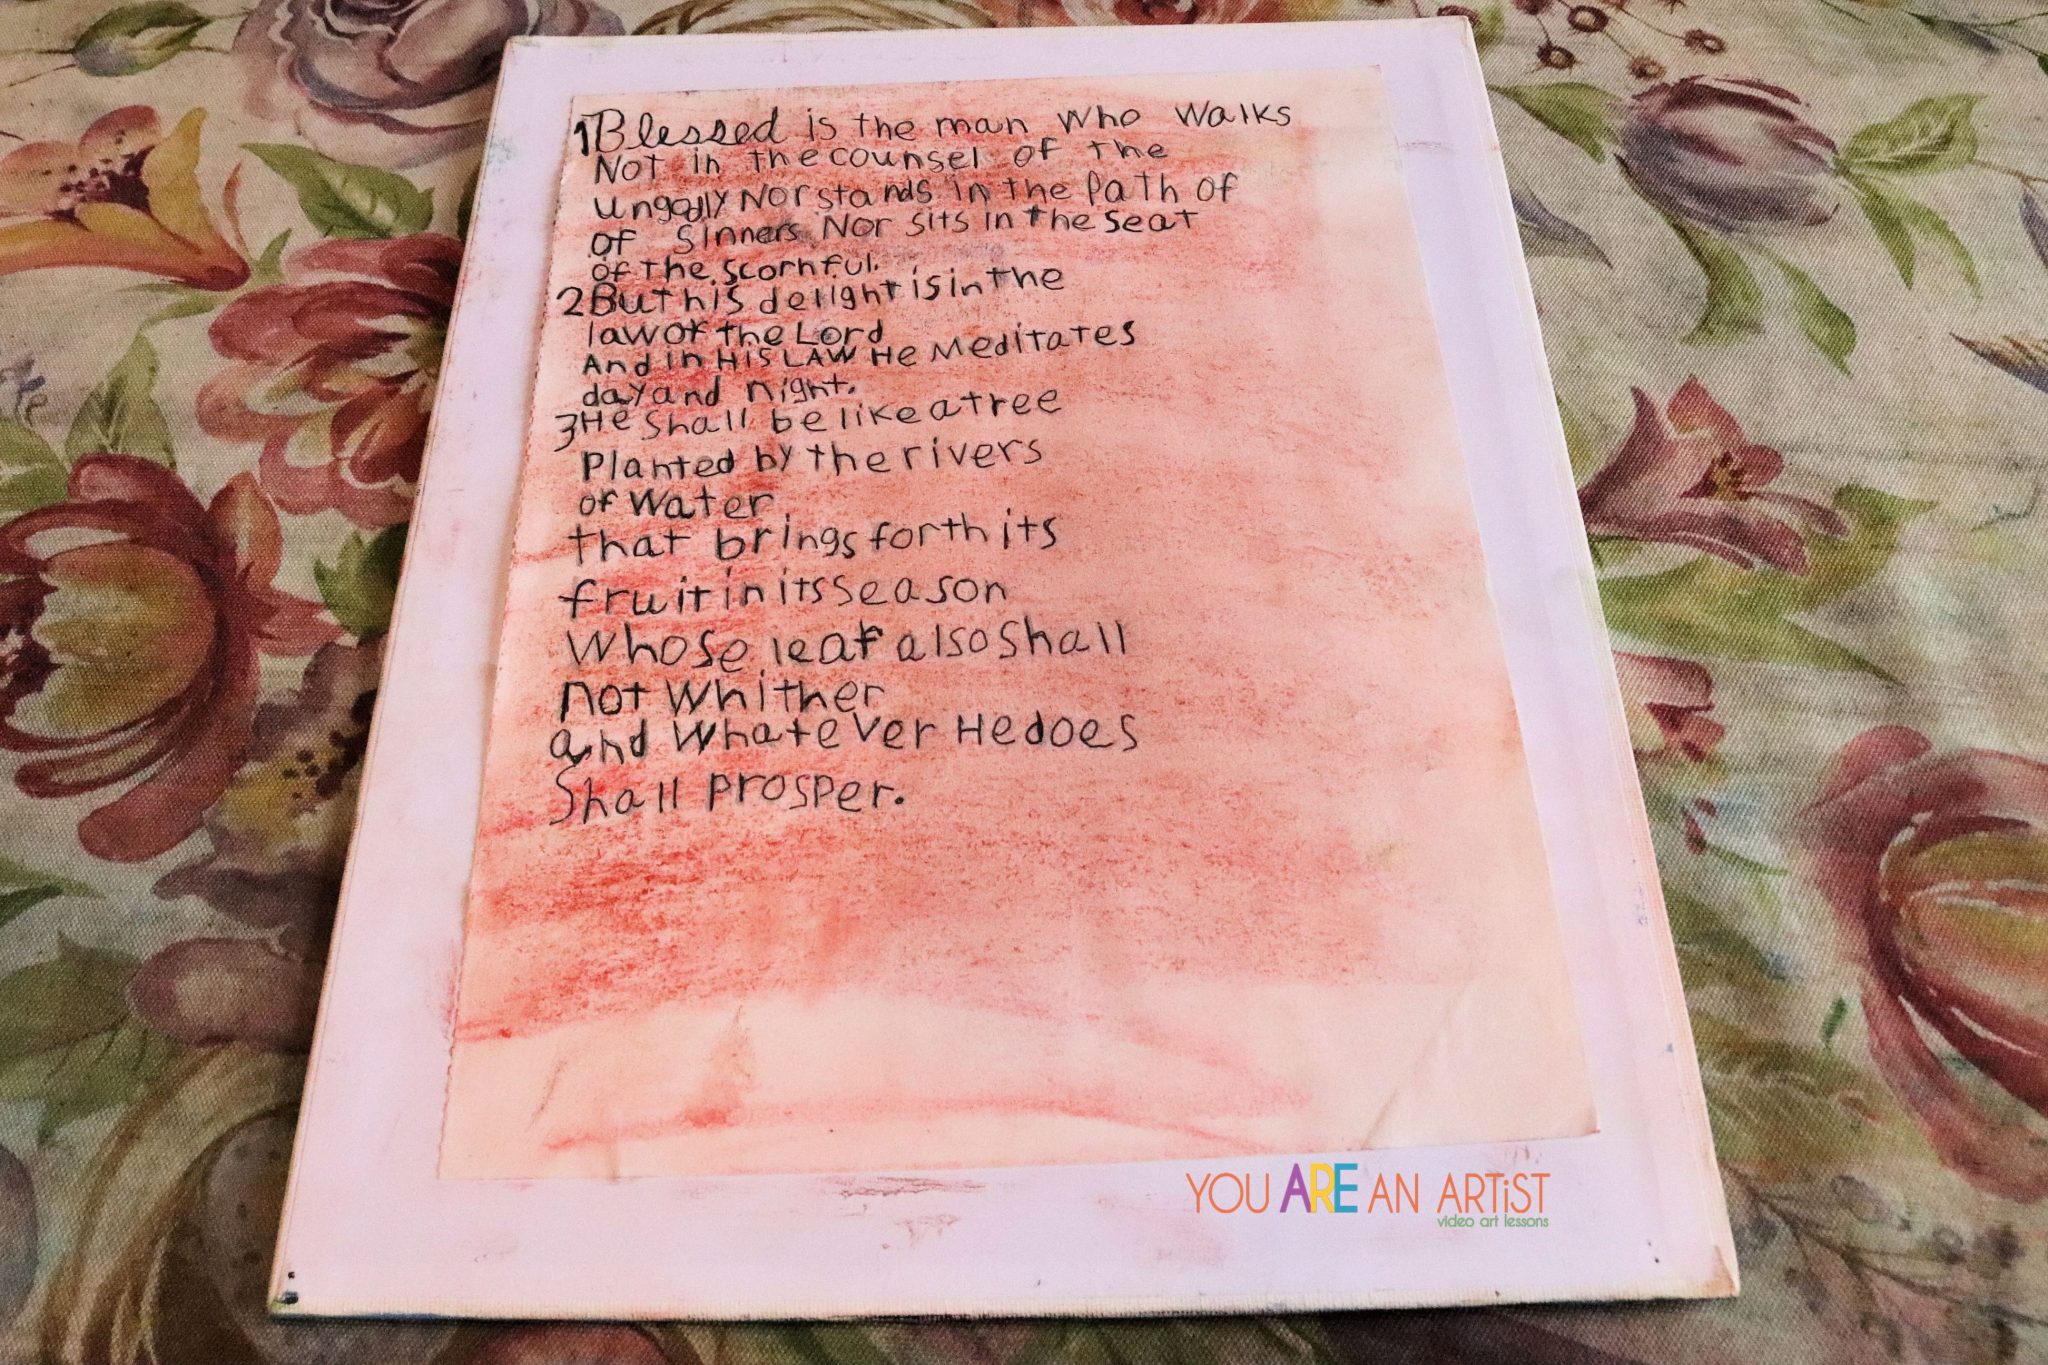 1 Blessed is the man who walks
Not in the counsel of the
ungodly Nor stands in the path of
of sinners Nor sits in the seat
of the scornful.
2 But his delight is in the
law of the Lord
And in His LAW He Meditates
day and night.
3 He shall be like a tree
Planted by the rivers
of Water
that brings forth its
fruit in its season
Whose leaf also shall
not Whither
and Whatever He does
Shall prosper.
YOU ARE AN ARTiST
video art lessons